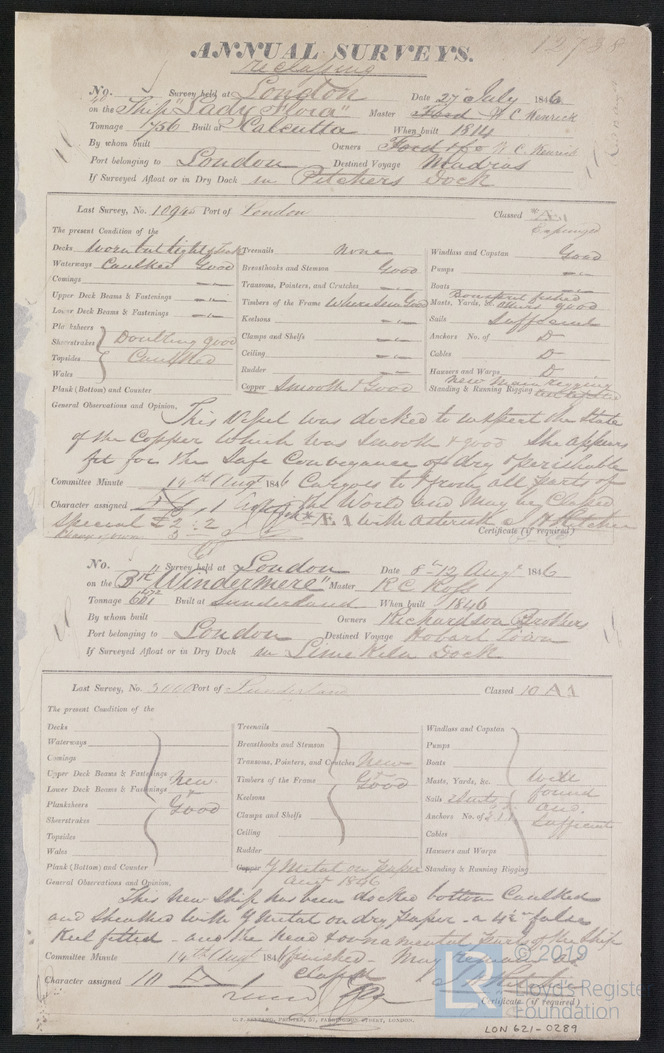 12788
ANNUAL SURVEYS.
reclassing
No. Survey held at London Date 27 July 1846
on the Ship "Lady Flora" Master Ford W. C. Menrick
Tonnage 756 Built at Calcutta When built 1814
By whom built Owners Ford & Co W. C. Menrick
Port belonging to London Destined Voyage Madras
If Surveyed Afloat or in Dry Dock in Pitchers Dock
Last Survey, No. 10945 Port of London Classed *Æ1
Expunged
The present Condition of the
Decks Worn but tight
Waterways Caulked Good
Comings
Upper Deck Beams & Fastenings
Lower Deck Beams & Fastenings
Planksheers
Sheerstrakes Doubling good
Topsides Caulked
Wales
Plank (Bottom) and Counter
Treenails None
Breasthooks and Stemson Good
Transoms, Pointers, and Crutches
Timbers of the Frame Where seen Good
Keelsons
Clamps and Shelfs
Ceiling
Rudder
Copper Smooth & Good
Windlass and Capstan Good
Pumps
Boats
Masts, Yards, & others good
Sails Sufficient
Anchors No. of Do
Cables Do
Hawsers and Warps Do
New Main Rigging
Standing & Running Rigging
General Observations and Opinion, This Vessel was docked to inspect the state
of the Copper which was smooth & good She appears
fit for the Safe Conveyance of dry & perishable
Committee Minute 14th Augt 1846 Cargoes to & from all parts of
Character assigned Æ 1 the World and may be Classed
Special £2 : 2 *Æ1 with Asterisk
Certificate (if required)
No. Survey held at London Date 8-12 Augt 1846
on the Bk "Windermere" Master R C Ross
Tonnage Built at Sunderland When built 1846
By whom built Owners Richardson Brothers
Port belonging to London Destined Voyage Hobart Town
If Surveyed Afloat or in Dry Dock in Lime Kiln Dock
Last Survey, No. 3000 Port of Sunderland Classed 10 A1
The present Condition of the
Decks
Waterways
Comings
Upper Deck Beams & Fastenings New
Lower Deck Beams & Fastenings &
Planksheers Good
Sheerstrakes
Topsides
Wales
Plank (Bottom) and Counter
Treenails
Breasthooks and Stemson
Transoms, Pointers, and Crutches New
Timbers of the Frame & Good
Keelsons
Clamps and Shelfs
Ceiling
Rudder
Copper Y Metal on paper
Augt 1846
Windlass and Capstan
Pumps
Boats
Masts, Yards, &c. Well
Sails found
Anchors No. of and
Cables Sufficient
Hawsers and Warps
Standing & Running Rigging
General Observations and Opinion,
This new Ship has been docked bottom Caulked
and Sheathed with Y Metal on dry paper - a 4½ false
Keel fitted - and the head & ornamental parts of the Ship
Committee Minute 14th Augt 1846 finished - May remain as
Character assigned 10 A 1 classed
Certificate (if required)
© 2019
Lloyd's Register
Foundation
LR
LON 621-0289